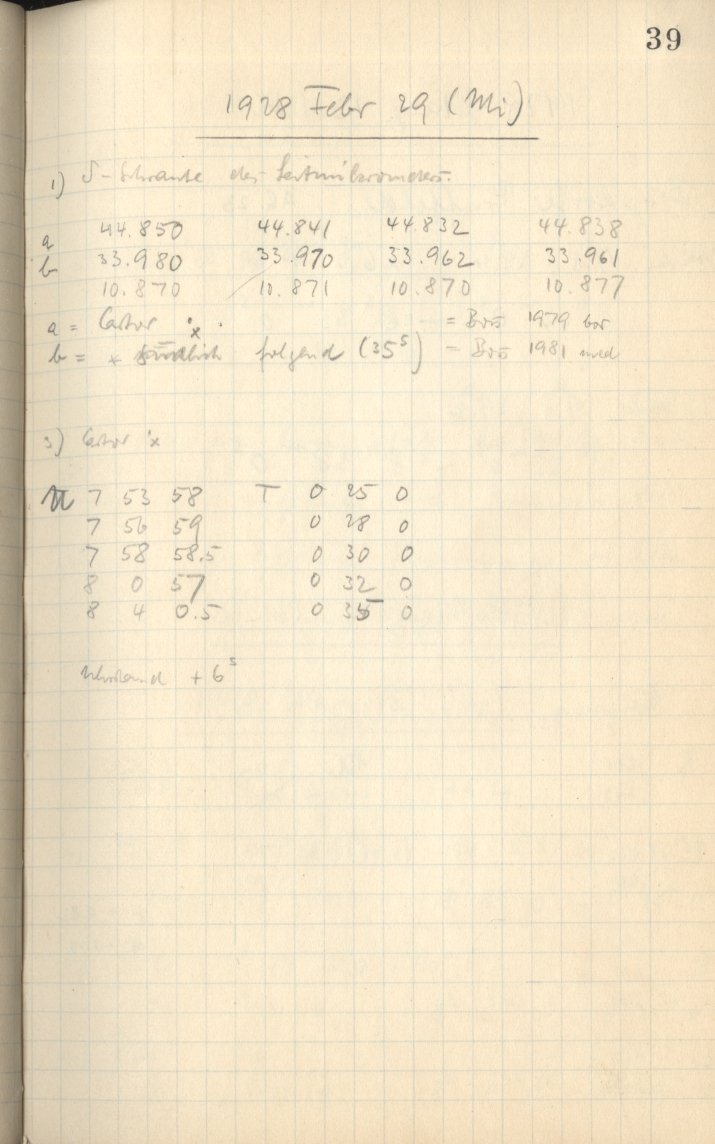 39
1928 Febr 29 (Mi)
1) δ-Schraube des
a 44.850 44.841 44.832 44.838
b 33.980 33.970 33.962 33.961
10.870 10.871 10.870 10.877
a = Castor = 1979 bor
b = * südlich folgend (35s) = 1981 med
Castor
7 53 58 T 0 25 0
7 56 59 0 28 0
7 58 58.5 0 30 0
8 0 57 0 32 0
8 4 0.5 0 35 0
Uhrstand + 6s